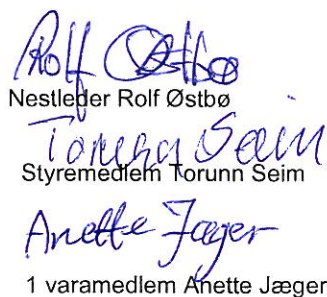 Rolf Østbø
Nestleder Rolf Østbø
Torunn Seim
Styremedlem Torunn Seim
Anette Jæger
1 varamedlem Anette Jæger